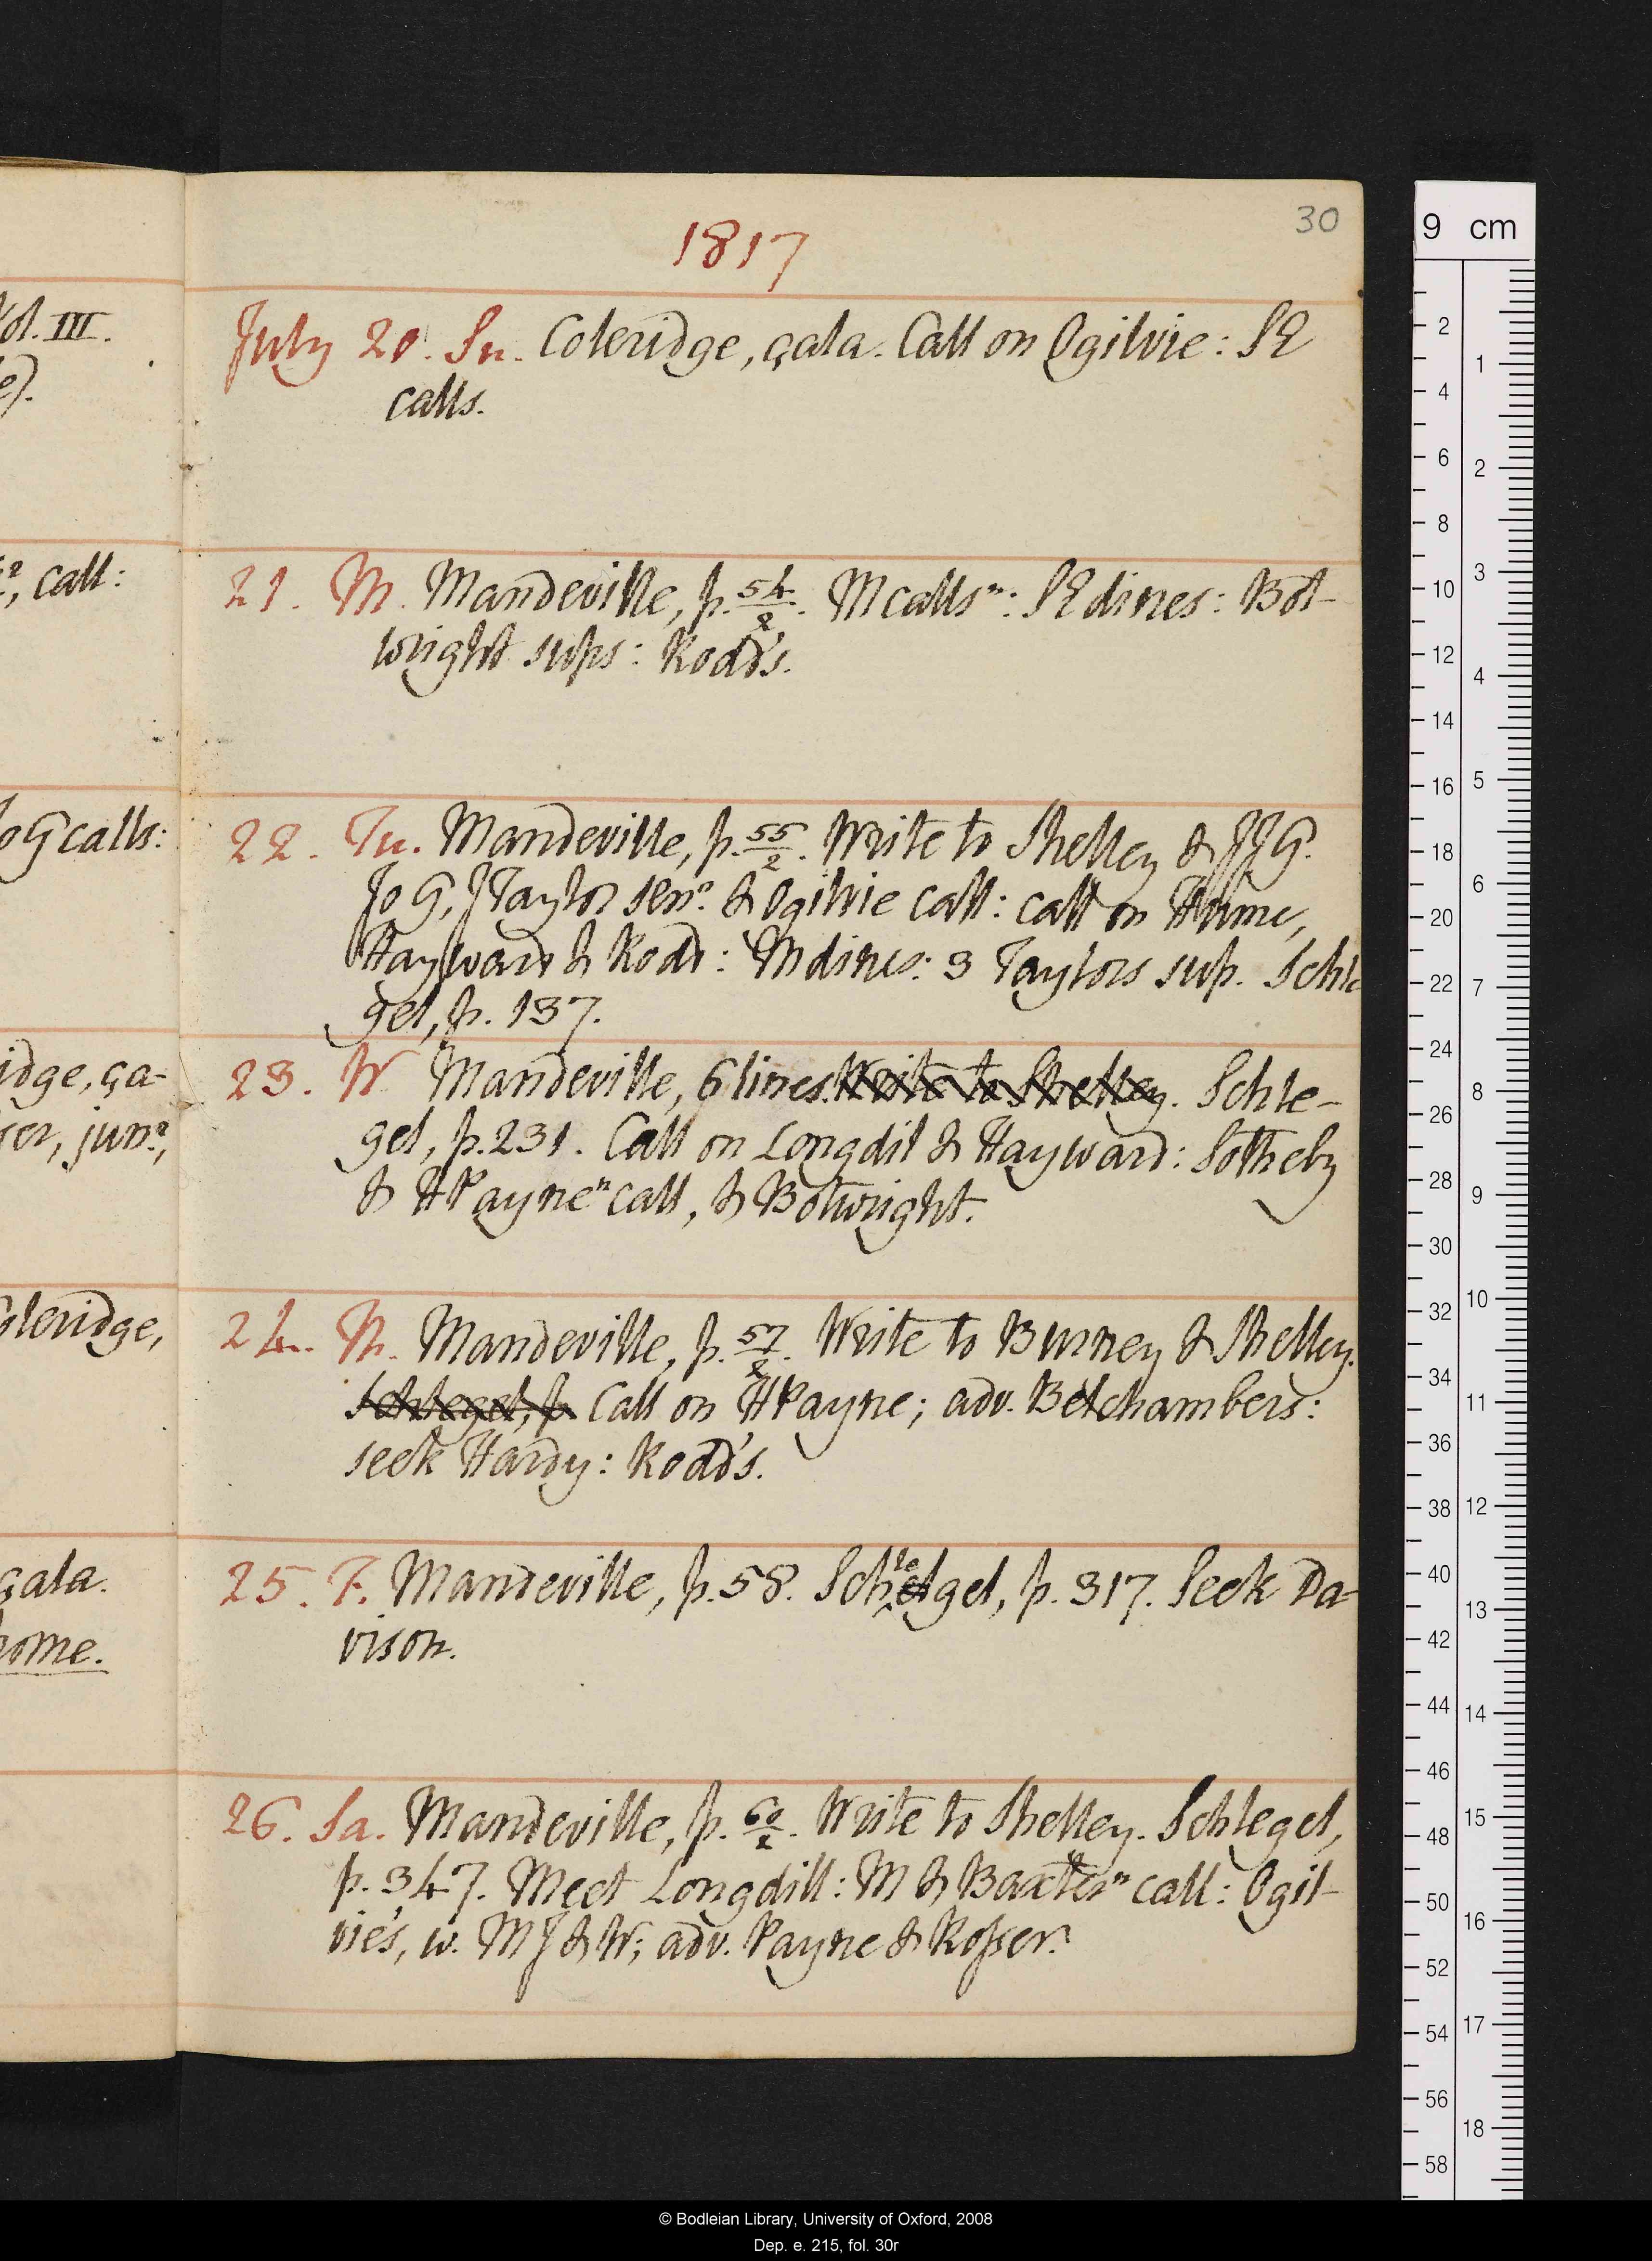 Vol. III.
e).
call:
o G calls:
idge, ça-
ser, junr,
oleridge,
çala.
home.
30
1817
July 20. Su. Coleridge, çala. Call on Ogilvie: SE
calls.
21. M. Mandeville, p. 54/2. M callsn: SE dines: Bot-
wright sups: Rodd's.
22. Tu. Mandeville, p. 55/2. Write to Shelley & JJG.
Jo G, J Taylor senr. & Ogilvie call: call on Hume,
Hayward & Rodd: M dines: 3 Taylors sup. Schle
gel, p. 137.
23. W Mandeville, 6 lines. Write to Shelley. Schle-
gel, p. 231. Call on Longdil & Hayward: Sotheby
& H Paynen call, & Botwright.
24. Th. Mandeville, p. 57/2. Write to Burney & Shelley.
Schlegel, p. Call on H Payne; adv. Belchambers:
seek Hardy: Rodd's.
25. F. Mandeville, p. 58. Schlegel, p. 317. Seek Da-
vison.
26. Sa. Mandeville, p. 60/2. Write to Shelley. Schlegel,
p. 347. Meet Longdill: M & Baxtern call: Ogil-
vie's, w. MJ & W; adv. Payne & Rosser.
9 cm
2 4 6 8 10 12 14 16 18 20 22 24 26 28 30 32 34 36 38 40 42 44 46 48 50 52 54 56 58
1 2 3 4 5 6 7 8 9 10 11 12 13 14 15 16 17 18
© Bodleian Library, University of Oxford, 2008
Dep. e. 215, fol. 30r